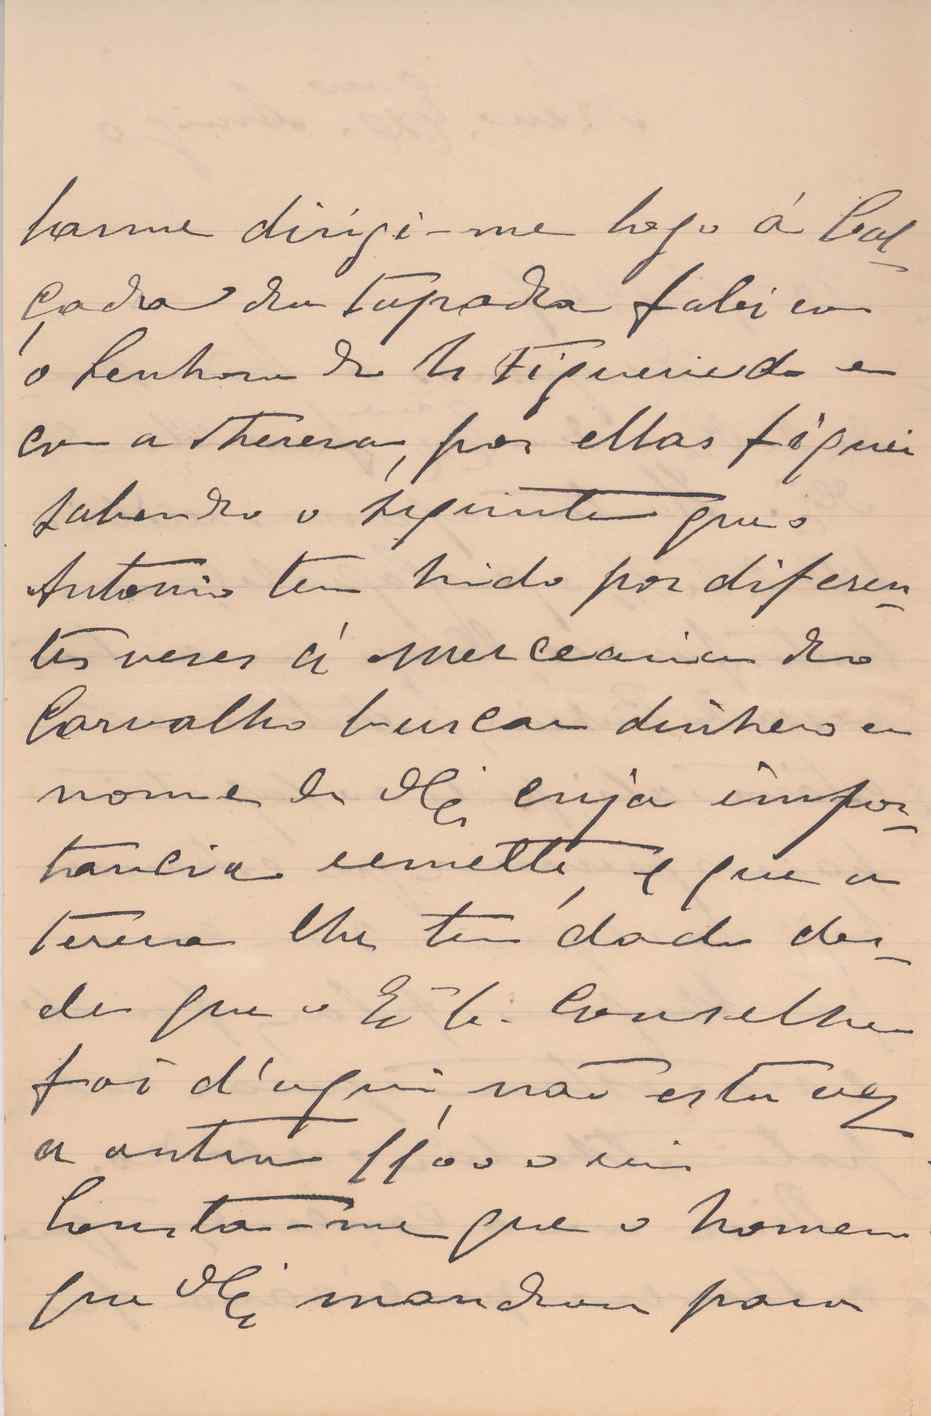 harme dirigi-me logo á Cal-
çada da tapada falei com
o Senhor de Figueiredo e
com a Theresa, por ellas fiquei
sabendo o seguinte que o
Antonio tem hido por diferen-
tes veses á mercearia do
Carvalho buscar dinheiro em
nome de cuja impor-
tancia remette, e que a
teresa lhe tem dado des-
de que o Conselheiro
foi d'aqui, não esta vez
a outra 11000 reis
Consta-me que o homem
que mandou para